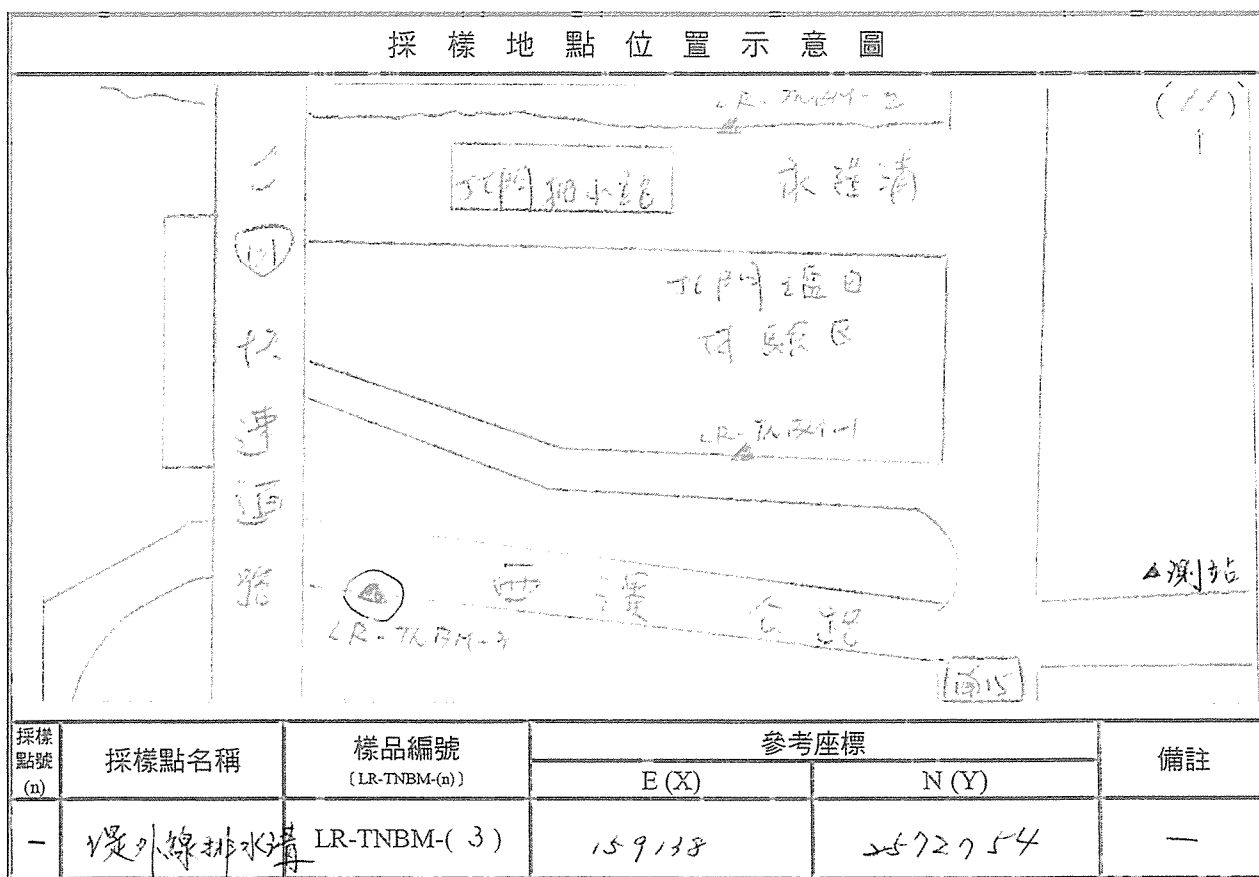 採樣地點位置示意圖
LR-TNBM-2
(11)
↑
北門抽水站
永隆溝
61
快速道路
北門鹽田
試驗區
LR-TNBM-1
西濱公路
LR-TNBM-3
測站
15
採樣點號(n)
採樣點名稱
樣品編號
〔LR-TNBM-(n)〕
參考座標
E (X)
N (Y)
備註
一
堤外線排水溝
LR-TNBM-( 3 )
159138
2572754
—